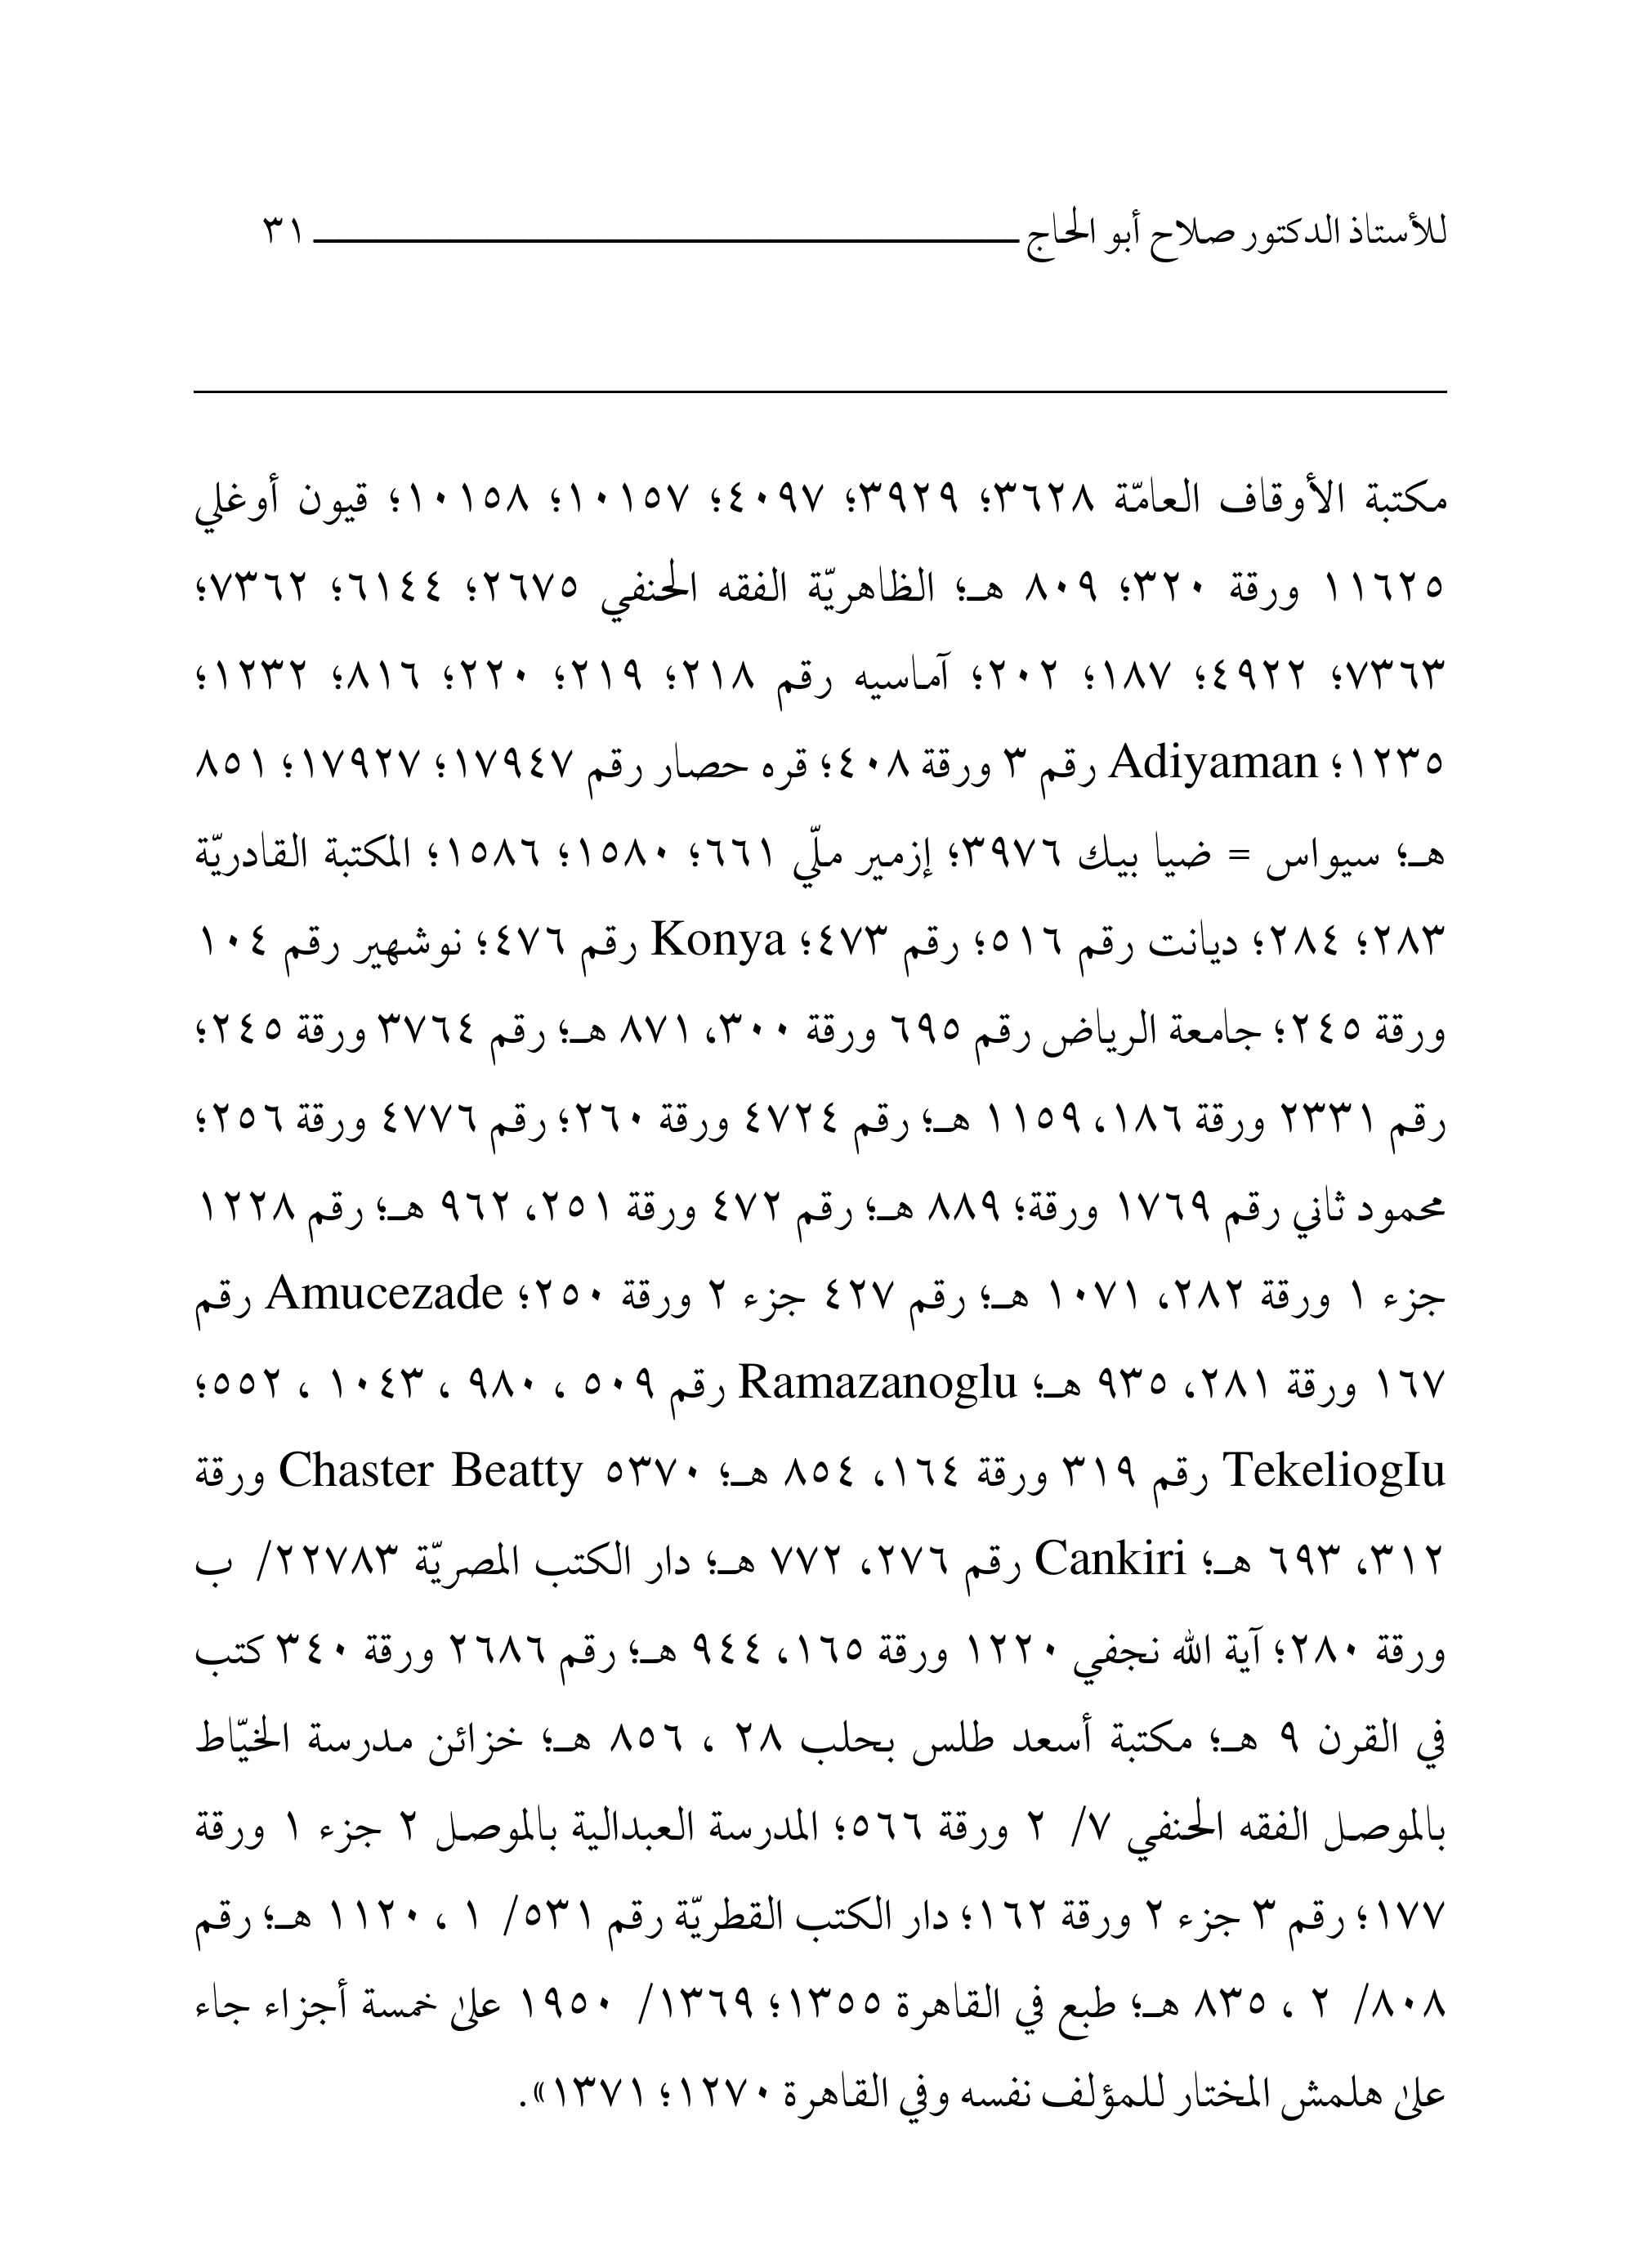 للأستاذ الدكتور صلاح أبو الحاج ــــــــــــــــــــــــــــــــــــــــــــــــ ٣١
مكتبة الأوقاف العامّة ٣٦٢٨؛ ٣٩٢٩؛ ٤٠٩٧؛ ١٠١٥٧؛ ١٠١٥٨؛ قيون أوغلي
١١٦٢٥ ورقة ٣٢٠؛ ٨٠٩ هـ؛ الظاهريّة الفقه الحنفي ٢٦٧٥؛ ٦١٤٤؛ ٧٣٦٢؛
٧٣٦٣؛ ٤٩٢٢؛ ١٨٧؛ ٢٠٢؛ آماسيه رقم ٢١٨؛ ٢١٩؛ ٢٢٠؛ ٨١٦؛ ١٢٣٢؛
١٢٣٥؛ Adiyaman رقم ٣ ورقة ٤٠٨؛ قره حصار رقم ١٧٩٤٧؛ ١٧٩٢٧؛ ٨٥١
هـ؛ سيواس = ضيا بيك ٣٩٧٦؛ إزمير ملّي ٦٦١؛ ١٥٨٠؛ ١٥٨٦؛ المكتبة القادريّة
٢٨٣؛ ٢٨٤؛ ديانت رقم ٥١٦؛ رقم ٤٧٣؛ Konya رقم ٤٧٦؛ نوشهير رقم ١٠٤
ورقة ٢٤٥؛ جامعة الرياض رقم ٦٩٥ ورقة ٣٠٠، ٨٧١ هـ؛ رقم ٣٧٦٤ ورقة ٢٤٥؛
رقم ٢٣٣١ ورقة ١٨٦، ١١٥٩ هـ؛ رقم ٤٧٢٤ ورقة ٢٦٠؛ رقم ٤٧٧٦ ورقة ٢٥٦؛
محمود ثاني رقم ١٧٦٩ ورقة؛ ٨٨٩ هـ؛ رقم ٤٧٢ ورقة ٢٥١، ٩٦٢ هـ؛ رقم ١٢٢٨
جزء ١ ورقة ٢٨٢، ١٠٧١ هـ؛ رقم ٤٢٧ جزء ٢ ورقة ٢٥٠؛ Amucezade رقم
١٦٧ ورقة ٢٨١، ٩٣٥ هـ؛ Ramazanoglu رقم ٥٠٩ ، ٩٨٠ ، ١٠٤٣ ، ٥٥٢؛
TekeliogIu رقم ٣١٩ ورقة ١٦٤، ٨٥٤ هـ؛ ٥٣٧٠ Chaster Beatty ورقة
٣١٢، ٦٩٣ هـ؛ Cankiri رقم ٢٧٦، ٧٧٢ هـ؛ دار الكتب المصريّة ٢٢٧٨٣/ ب
ورقة ٢٨٠؛ آية الله نجفي ١٢٢٠ ورقة ١٦٥، ٩٤٤ هـ؛ رقم ٢٦٨٦ ورقة ٣٤٠ كتب
في القرن ٩ هـ؛ مكتبة أسعد طلس بحلب ٢٨ ، ٨٥٦ هـ؛ خزائن مدرسة الخيّاط
بالموصل الفقه الحنفي ٧/ ٢ ورقة ٥٦٦؛ المدرسة العبدالية بالموصل ٢ جزء ١ ورقة
١٧٧؛ رقم ٣ جزء ٢ ورقة ١٦٢؛ دار الكتب القطريّة رقم ٥٣١/ ١ ، ١١٢٠ هـ؛ رقم
٨٠٨/ ٢ ، ٨٣٥ هـ؛ طبع في القاهرة ١٣٥٥؛ ١٣٦٩/ ١٩٥٠ علىٰ خمسة أجزاء جاء
علىٰ هلمش المختار للمؤلف نفسه وفي القاهرة ١٢٧٠؛ ١٣٧١».